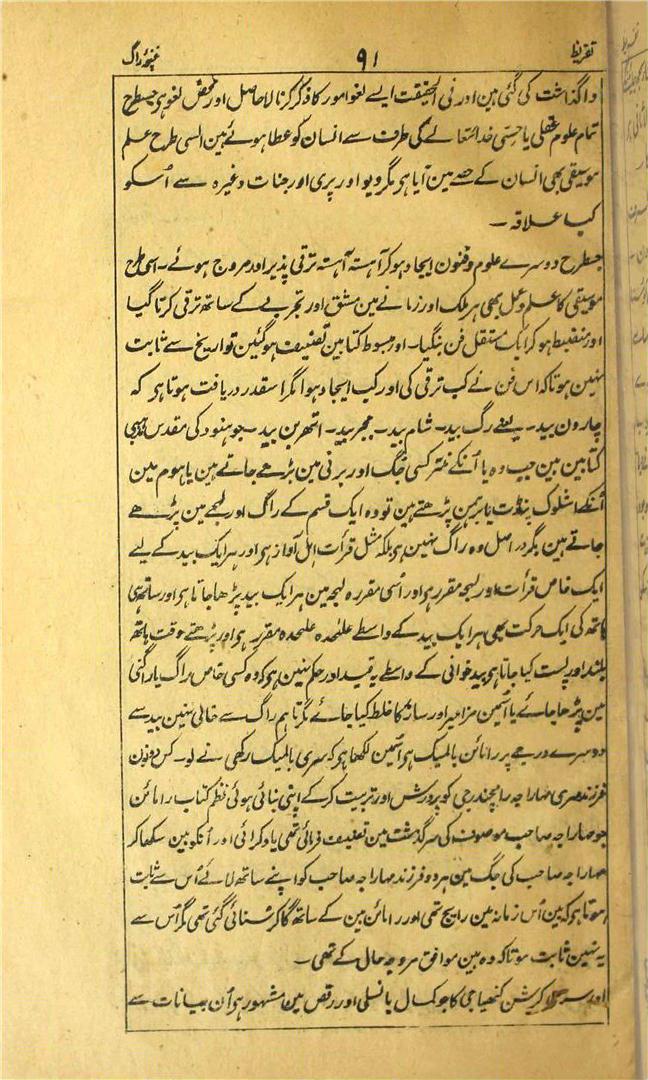 تقریظ ۹۱ غنچۂ راگ
واگذاشت کی گئی ہین اور فی الحقیقت ایسے لغو امور کا ذکر کرنا لاحاصل اور محض لغو ہی جسطرح
تمام علوم عقلی یا حسّی خدا تعالے کی طرف سے انسان کو عطا ہوئے ہین اسی طرح علم
موسیقی بھی انسان کے حصہ مین آیا ہی مگر دیو اور پری اور جنات وغیرہ سے اُسکو
کیا علاقہ ۔
جسطرح دوسرے علوم و فنون ایجاد ہوکر آہستہ آہستہ ترقی پذیر اور مروج ہوئے ۔ اسی طرح
موسیقی کا علم و عمل بھی ہر ملک اور زمانے مین مشق اور تجربے کے ساتھ ترقی کرتا گیا
اور منضبط ہوکر ایک مستقل فن بنگیا ۔ اور مبسوط کتابین تصنیف ہوگئین تواریخ سے ثابت
نہین ہوتا کہ اس فن نے کب ترقی کی اور کب ایجاد ہوا مگر اسقدر دریافت ہوتا ہی کہ
چارون بید ۔ یعنے رگ بید ۔ شام بید ۔ ججر بید ۔ اتھربن بید ۔ جو ہنود کی مقدس مذہبی
کتابین ہین جب وہ یا اُنکے منتر کسی جگ اور برنی مین پڑھے جاتے ہین یا ہوم مین
اُنکے اشلوک پنڈت یا برہمن پڑھتے ہین تو وہ ایک قسم کے راگ اور لہجے مین پڑھے
جاتے ہین مگر در اصل وہ راگ نہین ہی بلکہ مثل قرأت اہل آواز ہی اور ہر ایک بید کے لیے
ایک خاص قرأت اور لہجہ مقرر ہی اور اُسی مقررہ لہجہ مین ہر ایک بید پڑھا جاتا ہی اور ساتھ ہی
ہاتھ کی ایک حرکت بھی ہر ایک بید کے واسطے علیحدہ علیحدہ مقرر ہی اور پڑھتے وقت ہاتھ
بلند اور پست کیا جاتا ہی بید خوانی کے واسطے یہ قید اور حکم نہین ہی کہ وہ کسی خاص راگ یا راگنی
مین پڑھا جائے یا اُسمین مزامیر اور ساز کا خلط کیا جائے مگر تاہم راگ سے خالی نہین بید سے
دوسرے درجے پر رامائن بالمیک ہی اُسمین لکھا ہی کہ سری بالمیک رکھی نے لو ۔ کس دونون
فرزند سری مہاراجہ رامچندرجی کو پرورش اور تربیت کرکے اپنی بنائی ہوئی نظم کتاب رامائن
جو مہاراجہ صاحب موصوف کی سرگذشت مین تصنیف فرمائی تھی یاد کرائی اور اُنکو بین سکھا کر
مہاراجہ صاحب کی جگ مین ہر دو فرزند مہاراجہ صاحب کو اپنے ساتھ لائے اُس سے ثابت
ہوتا ہی کہ بین اُس زمانہ مین رایج تھی اور رامائن بین کے ساتھ گا کر سُنائی گئی تھی مگر اُس سے
یہ نہین ثابت ہوتا کہ وہ بین موافق مروجہ حال کے تھی ۔
اور سری کرشن کنھیا جی کا جو کمال بانسلی اور رقص مین مشہور ہی اُن بیانات سے